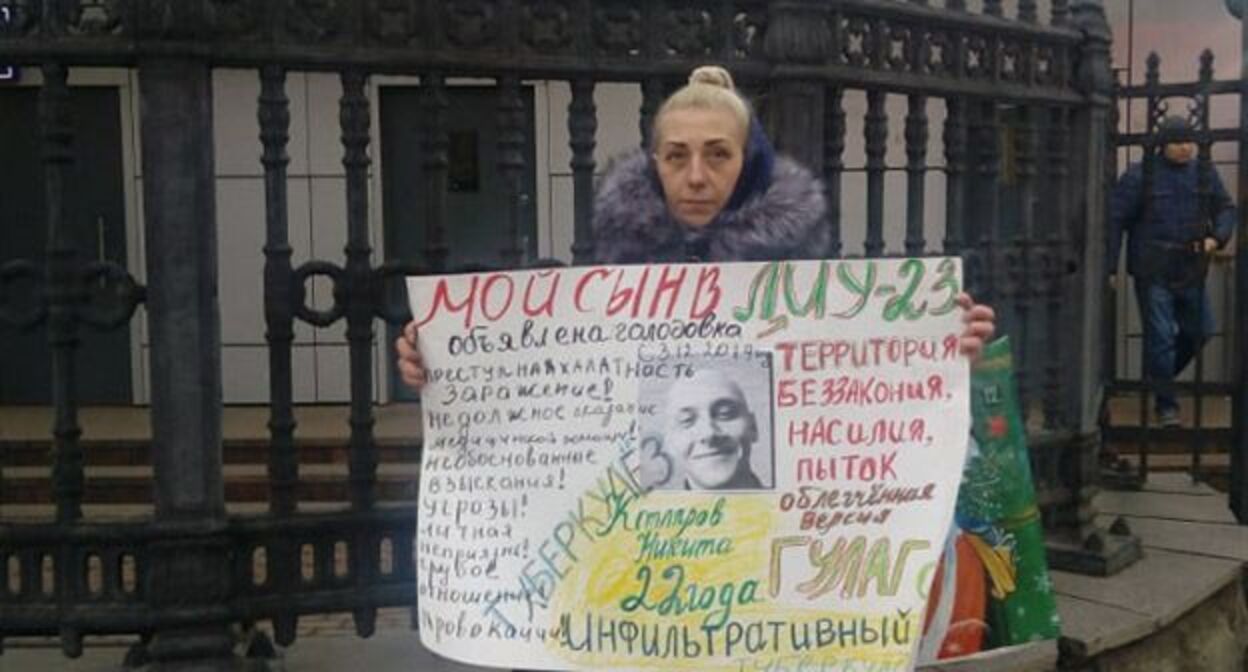 МОЙ СЫН В ЛИУ-23
объявлена голодовка
с 3.12.2019г
ПРЕСТУПНАЯ ХАЛАТНОСТЬ
Заражение!
недолжное оказание
медицинской помощи!
необоснованные
взыскания!
угрозы!
личная
неприязнь!
грубое
отношение!
провокации!
ТУБЕРКУЛЁЗ
ТЕРРИТОРИЯ
БЕЗЗАКОНИЯ,
НАСИЛИЯ,
ПЫТОК
облегчённая
версия
ГУЛАГ
Котляров
Никита
22 года
"ИНФИЛЬТРАТИВНЫЙ